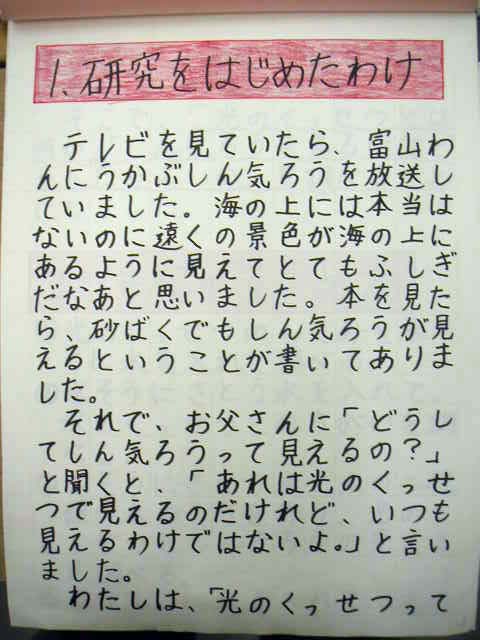 1、研究をはじめたわけ
テレビを見ていたら、富山わ
んにうかぶしん気ろうを放送し
ていました。海の上には本当は
ないのに遠くの景色が海の上に
あるように見えてとてもふしぎ
だなあと思いました。本を見た
ら、砂ばくでもしん気ろうが見
えるということが書いてありま
した。
それで、お父さんに「どうし
てしん気ろうって見えるの?」
と聞くと、「あれは光のくっせ
つで見えるのだけれど、いつも
見えるわけではないよ。」と言い
ました。
わたしは、「光のくっせつって